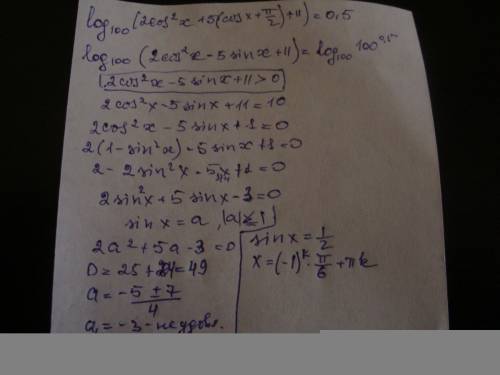 log₁₀₀ (2cos²x + 5(cosx + π/2) + 11) = 0,5
log₁₀₀ (2cos²x - 5sinx + 11) = log₁₀₀ 100^0,5
2cos²x - 5sinx + 11 > 0
2cos²x - 5sinx + 11 = 10
2cos²x - 5sinx + 1 = 0
2(1 - sin²x) - 5sinx + 1 = 0
2 - 2sin²x - 5 sinx + 1 = 0
2sin²x + 5 sinx - 3 = 0
sinx = a, |a| ≤ 1
2a² + 5a - 3 = 0
D = 25 + 24 = 49
a = (-5 ± 7)/4
a₁ = -3 - не удовл.
sinx = 1/2
x = (-1)^k · π/6 + πk